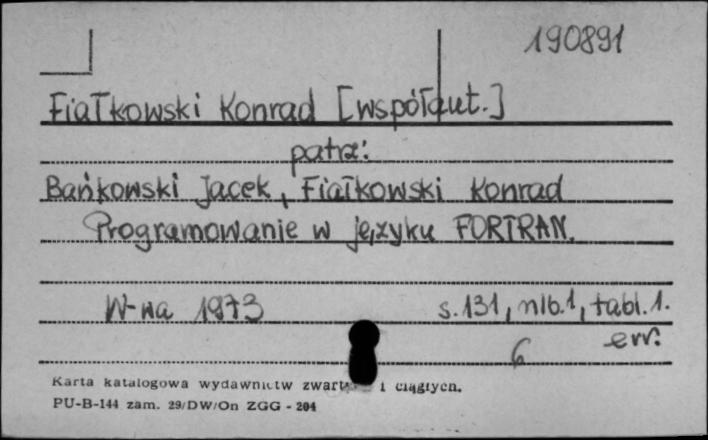 190891
Fiałkowski Konrad [współaut.]
patrz:
Bańkowski Jacek, Fiałkowski Konrad
Programowanie w języku FORTRAN.
W-wa 1973 s.131, nlb.1, tabl.1.
6 err.
Karta katalogowa wydawnictw i ciągłych.
PU-B-144 zam. 29/DW/On ZGG - 204